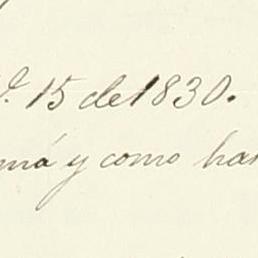 15 de 1830.
má y como han